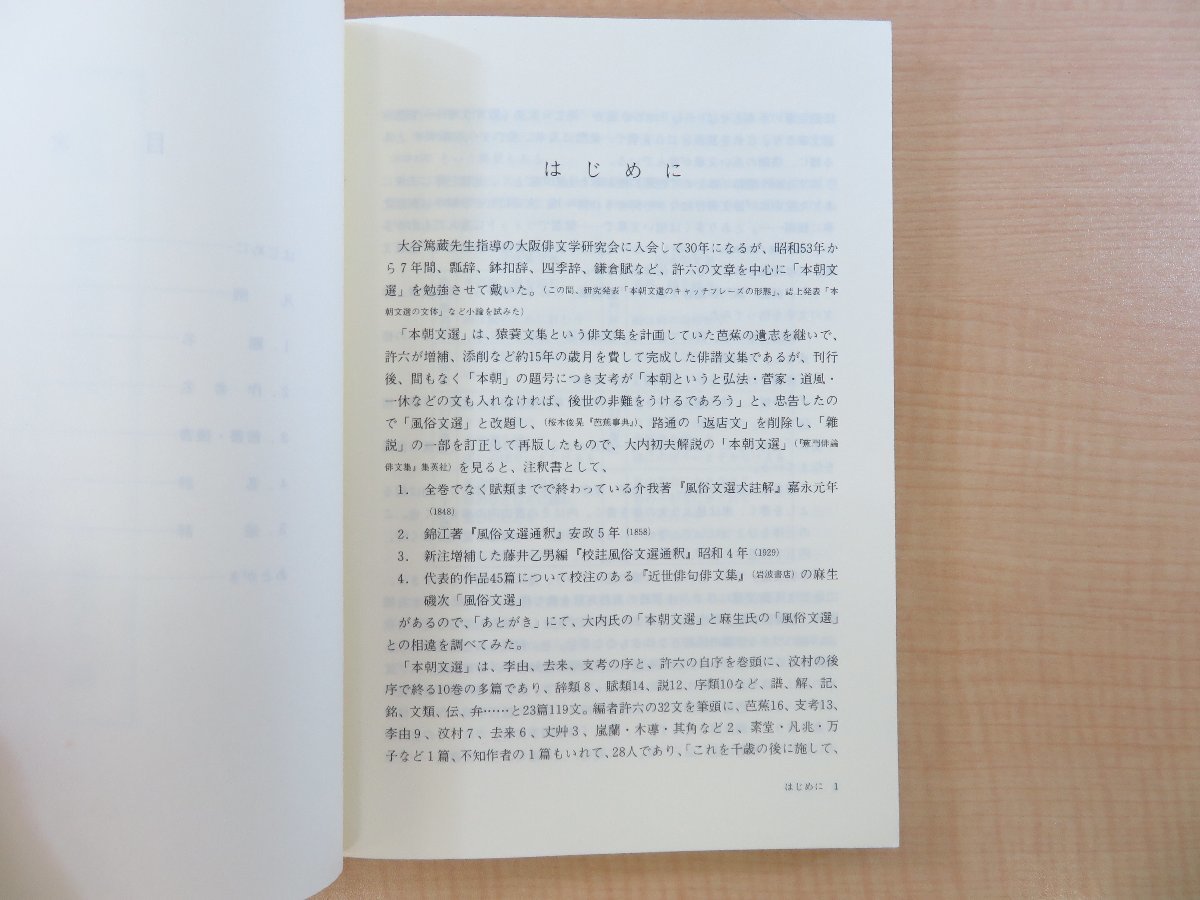 はじめに
大谷篤蔵先生指導の大阪俳文学研究会に入会して30年になるが、昭和53年か
ら7年間、瓢辞、鉢扣辞、四季辞、鎌倉賦など、許六の文章を中心に「本朝文
選」を勉強させて戴いた。(この間、研究発表「本朝文選のキャッチフレーズの形態」、誌上発表「本
朝文選の文体」など小論を試みた)
「本朝文選」は、猿蓑文集という俳文集を計画していた芭蕉の遺志を継いで、
許六が増補、添削など約15年の歳月を費して完成した俳諧文集であるが、刊行
後、間もなく「本朝」の題号につき支考が「本朝というと弘法・菅家・道風・
一休などの文も入れなければ、後世の非難をうけるであろう」と、忠告したの
で「風俗文選」と改題し、(桜本俊晃『芭蕉事典』)、路通の「返店文」を削除し、「雑
説」の一部を訂正して再版したもので、大内初夫解説の「本朝文選」(『蕉門俳論
俳文集』集英社)を見ると、注釈書として、
1. 全巻でなく賦類までで終わっている介我著『風俗文選犬註解』嘉永元年
(1848)
2. 錦江著『風俗文選通釈』安政5年(1858)
3. 新注増補した藤井乙男編『校註風俗文選通釈』昭和4年(1929)
4. 代表的作品45篇について校注のある『近世俳句俳文集』(岩波書店)の麻生
磯次「風俗文選」
があるので、「あとがき」にて、大内氏の「本朝文選」と麻生氏の「風俗文選」
との相違を調べてみた。
「本朝文選」は、李由、去来、支考の序と、許六の自序を巻頭に、汶村の後
序で終る10巻の多篇であり、辞類8、賦類14、説12、序類10など、譜、解、記、
銘、文類、伝、弁……と23篇119文。編者許六の32文を筆頭に、芭蕉16、支考13、
李由9、汶村7、去来6、丈艸3、嵐蘭・木導・其角など2、素堂・凡兆・万
子など1篇、不知作者の1篇もいれて、28人であり、「これを千歳の後に施して、
はじめに 1